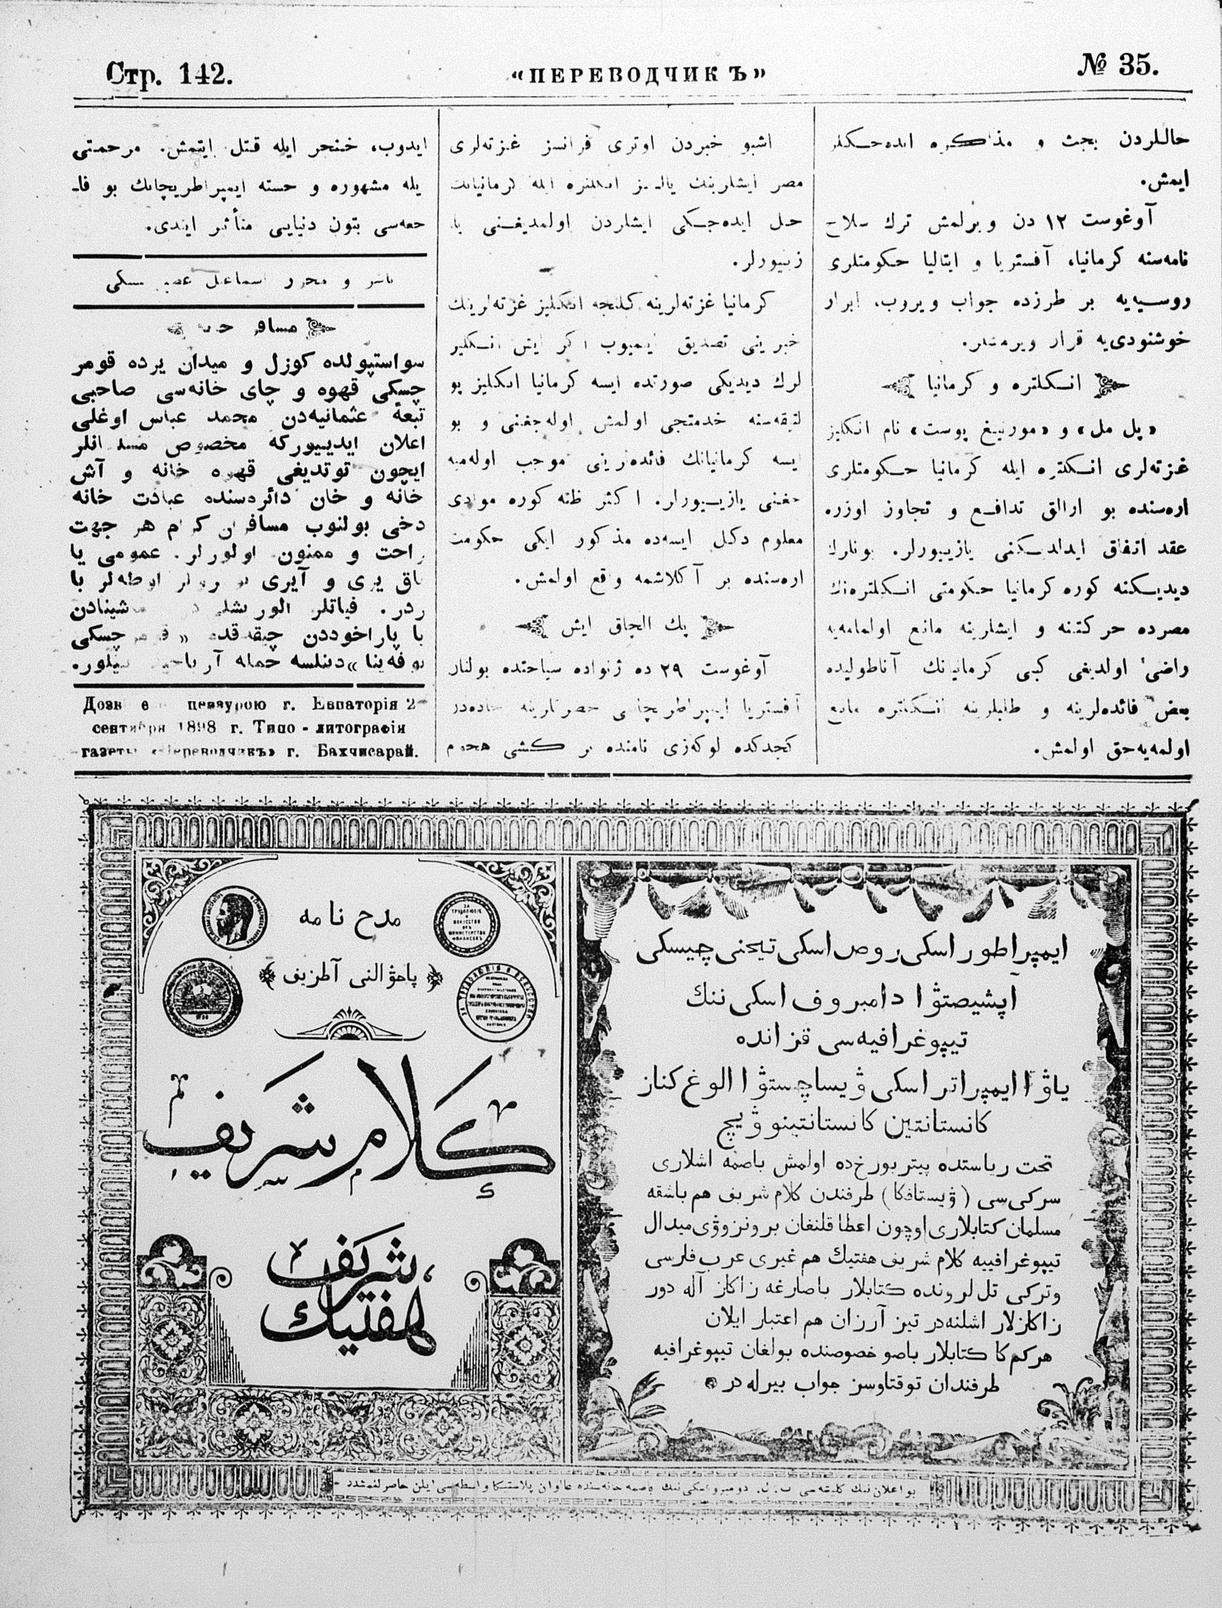 Стр. 142.
«ПЕРЕВОДЧИКЪ»
№ 35.
حاللردن بحث و مذاكره ايده‌جكلر
ايمش.
آوغوست ١٢ دن ويرلمش ترك سلاح
نامه‌سنه كرمانيا، آفستريا و ايتاليا حكومتلری
روسيه‌يه بر طرزده جواب ويروب، ابراز
خوشنودی‌يه قرار ويرمشلر.
انكلتره و كرمانيا
«پل مل» و «مورنينغ پوست» نام انكليز
غزته‌لری انكلتره ايله كرمانيا حكومتلری
اره‌سنده بو ارالق تدافع و تجاوز اوزره
عقد اتفاق ايدلديكنی يازييورلر. بونلرك
ديديكنه كوره كرمانيا حكومتی انكلتره‌نك
مصرده حركتنه و ايشلرينه مانع اولمامه‌يه
راضی اولديغی كبی كرمانيانك آناطوليده
بعض فائده‌لرينه و طلبلرينه انكلتره مانع
اولمه‌يه‌جق اولمش.
اشبو خبردن اوتری فرانسز غزته‌لری
مصر ايشلرينك يالكز انكلتره ايله كرمانيانك
حل ايده‌جكی ايشلردن اولمديغنی يا
زييورلر.
كرمانيا غزته‌لرينه كلنجه انكليز غزته‌لرينك
خبرينی تصديق ايتميوب اكر ايش انكليز
لرك ديديكی صورتده ايسه كرمانيا انكليز پو
لتيقه‌سنه خدمتجی اولمش اوله‌جغنی و بو
ايسه كرمانيانك فائده‌لرينی موجب اولمه‌يه
جغنی يازييورلر. اكثر ظنه كوره موادی
معلوم دكل ايسه‌ده مذكور ايكی حكومت
اره‌سنده بر آكلاشمه واقع اولمش.
پك الچاق ايش
آوغوست ٢٩ ده ژنواده سياحتده بولنان
آفستريا ايمپراطريچه‌سی حضرتلرينه جاده‌دن
كچدكده لوكه‌زی نامنده بر كشی هجوم
ايدوب، خنجر ايله قتل ايتمش. مرحمتی
يله مشهوره و خسته ايمپراطريچانك بو فا‍
جعه‌سی بتون دنيايی متأثر ايتدی.
ناشر و محرر اسماعيل غصپرينسكی
مسافر خانه
سواستپولده كوزل و ميدان يرده قومر
چسكی قهوه و چای خانه‌سی صاحبی
تبعة عثمانيه‌دن محمد عباس اوغلی
اعلان ايدييوركه مخصوص مسلمانلر
ايچون توتديغی قهوه خانه و آش
خانه و خان دائره‌سنده عبادت خانه
دخی بولنوب مسافران كرام هر جهت
راحت و ممنون اولورلر. عمومی يا
تاق يری و آيری نومرولر اوطه‌لر با
ردر. فياتلر الويريشليدر. ماشينادن
يا پاراخوددن چيقه‌قده «قومرچسكی
قوفه‌ينا» دينلسه حمله آرباجيلر بيلور.
Дозв. цензурою г. Евпаторія 2
сентября 1898 г. Типо-литографія
газеты «Переводчикъ» г. Бахчисарай.
مدح نامه
پاحۋالنی آطزيف
كلام شريف
هفتيك شريف
ايمپراطور اسكی روص اسكی تيخنی چيسكی
آپشيصتۋا دامبروف اسكی ننك
تيپوغرافيه‌سی قزانده
ياۋا ايمپراتر اسكی ۋيساچستۋا الوغ كناز
كانستانتين كانستانتينوۋيچ
تحت رياستده پيتربورخ‌ده اولمش باصمه اشلاری
سركی‌سی (ۋيستافكا) طرفندن كلام شريف هم باشقه
مسلمان كتابلاری اوچون اعطا قلنغان برونزوۋی ميدال
تيپوغرافييه كلام شريف هفتيك هم غيری عرب فارسی
وتركی تل‌لرونده كتابلار باصارغه زاكاز آله دور
زاكازلار اشلنه‌در تيز آرزان هم اعتبار ايلان
هركم‌كا كتابلار باصو خصوصنده بولغان تيپوغرافيه
طرفندان توقتاوسز جواب بيرله‌در